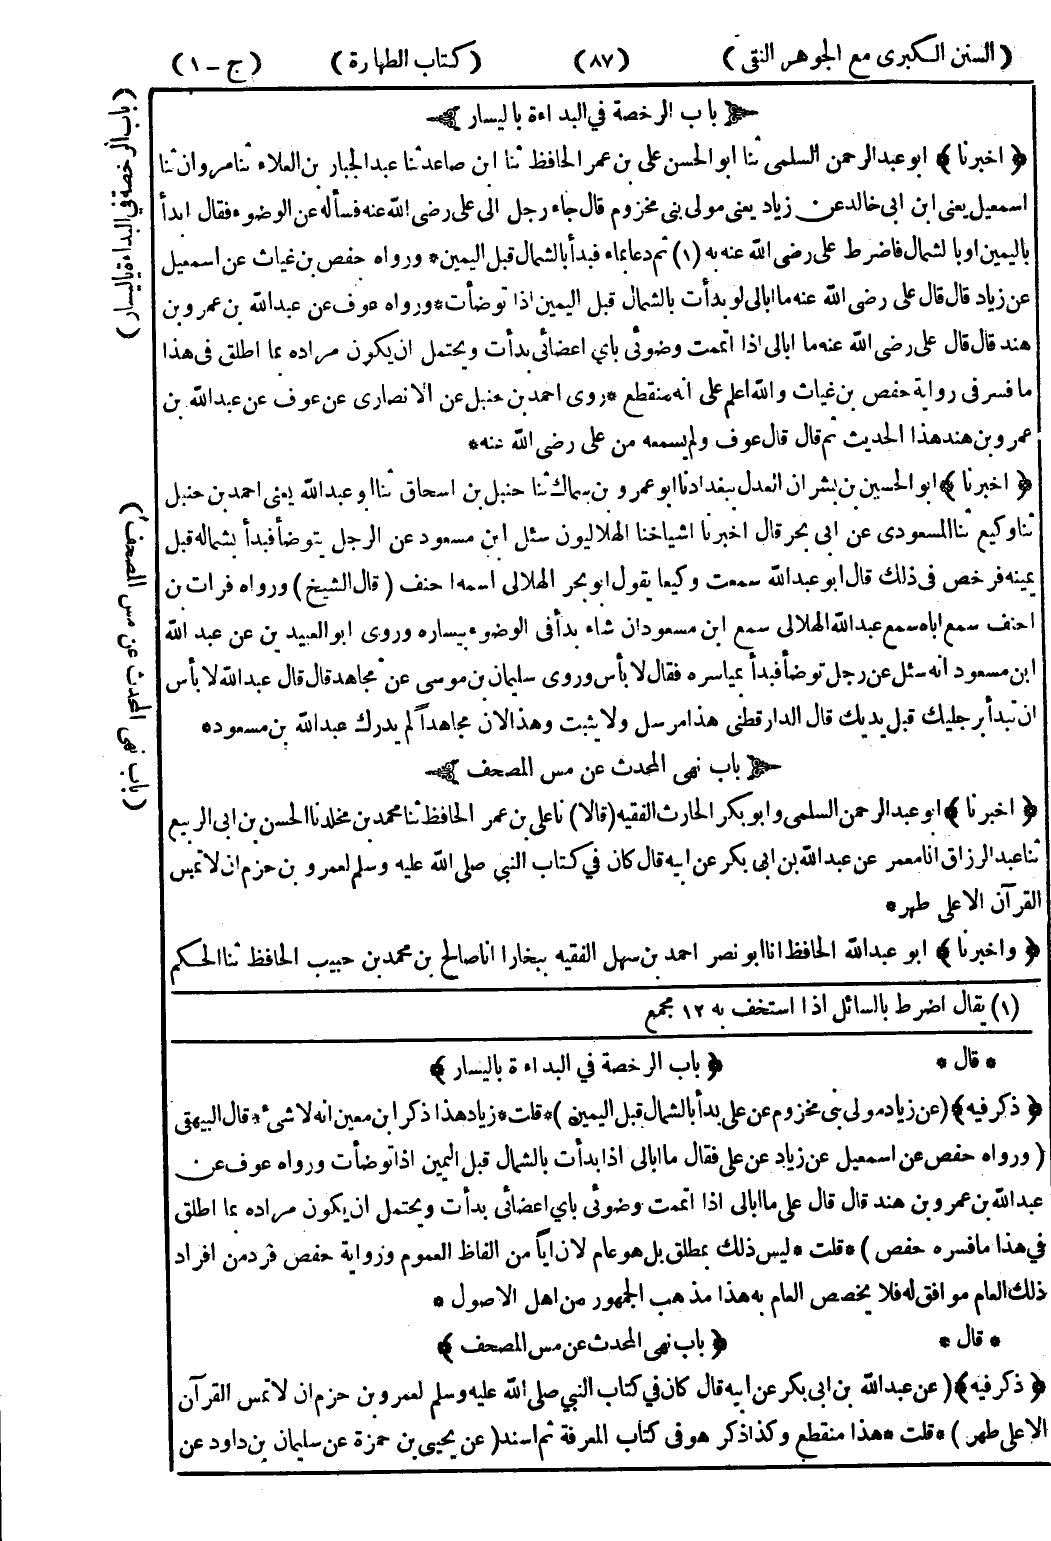 (السنن الكبرى مع الجوهر النقى) (٨٧) (كتاب الطهارة) (ج - ١)
باب الرخصة في البداءة باليسار
﴿ اخبرنا ﴾ ابو عبد الرحمن السلمى ثنا ابو الحسن على بن عمر الحافظ ثنا ابن صاعد ثنا عبد الجبار بن العلاء ثنا مروان ثنا
اسمعيل يعنى ابن ابى خالد عن زياد يعنى مولى بنى مخزوم قال جاء رجل الى على رضى الله عنه فسأله عن الوضوء فقال ابدأ
باليمين او بالشمال فاضرط على رضى الله عنه به (١) ثم دعا بماء فبدأ بالشمال قبل اليمين * ورواه حفص بن غياث عن اسمعيل
عن زياد قال قال على رضى الله عنه ما ابالى لو بدأت بالشمال قبل اليمين اذا توضأت * ورواه عوف عن عبد الله بن عمرو بن
هند قال قال على رضى الله عنه ما ابالى اذا اتممت وضوئى باي اعضائى بدأت ويحتمل ان يكون مراده بما اطلق فى هذا
ما فسر فى رواية حفص بن غياث والله اعلم على انه منقطع * روى احمد بن حنبل عن الانصارى عن عوف عن عبد الله بن
عمرو بن هند هذا الحديث ثم قال قال عوف ولم يسمعه من على رضى الله عنه *
﴿ اخبرنا ﴾ ابو الحسين بن بشران العدل ببغداد نا ابو عمرو بن سماك ثنا حنبل بن اسحاق ثنا ابو عبد الله يعنى احمد بن حنبل
ثنا وكيع ثنا المسعودى عن ابى بحر قال اخبرنا اشياخنا الهلاليون سئل ابن مسعود عن الرجل يتوضأ فبدأ بشماله قبل
يمينه فرخص فى ذلك قال ابو عبد الله سمعت وكيعا يقول ابو بحر الهلالى اسمه احنف (قال الشيخ) ورواه فرات بن
احنف سمع اباه سمع عبد الله الهلالى سمع ابن مسعود ان شاء بدأ فى الوضوء بيساره وروى ابو العبيد بن عن عبد الله
ابن مسعود انه سئل عن رجل توضأ فبدأ بمياسره فقال لا بأس وروى سليمان بن موسى عن مجاهد قال قال عبد الله لا بأس
ان تبدأ برجليك قبل يديك قال الدارقطنى هذا مرسل ولا يثبت وهذا لان مجاهداً لم يدرك عبد الله بن مسعود *
باب نهى المحدث عن مس المصحف
﴿ اخبرنا ﴾ ابو عبد الرحمن السلمى وابو بكر الحارث الفقيه (قالا) نا على بن عمر الحافظ ثنا محمد بن مخلد نا الحسن بن ابى الربيع
ثنا عبد الرزاق انا معمر عن عبد الله بن ابى بكر عن ابيه قال كان في كتاب النبي صلى الله عليه وسلم لعمرو بن حزم ان لا تمس
القرآن الا على طهر *
﴿ واخبرنا ﴾ ابو عبد الله الحافظ انا ابو نصر احمد بن سهل الفقيه ببخارا انا صالح بن محمد بن حبيب الحافظ ثنا الحكم
(١) يقال اضرط بالسائل اذا استخف به ١٢ مجمع
* قال * ﴿ باب الرخصة في البداءة باليسار ﴾
﴿ ذكر فيه ﴾ (عن زياد مولى بنى مخزوم عن على بدأ بالشمال قبل اليمين) * قلت * زياد هذا ذكر ابن معين انه لا شىء * قال البيهقى
(ورواه حفص عن اسمعيل عن زياد عن على فقال ما ابالى اذا بدأت بالشمال قبل اليمين اذا توضأت ورواه عوف عن
عبد الله بن عمرو بن هند قال قال على ما ابالى اذا اتممت وضوئى باي اعضائى بدأت ويحتمل ان يكون مراده بما اطلق
في هذا ما فسره حفص) * قلت * ليس ذلك بمطلق بل هو عام لان اياً من الفاظ العموم ورواية حفص فرد من افراد
ذلك العام موافق له فلا يخصص العام به هذا مذهب الجمهور من اهل الاصول *
* قال * ﴿ باب نهى المحدث عن مس المصحف ﴾
﴿ ذكر فيه ﴾ (عن عبد الله بن ابى بكر عن ابيه قال كان في كتاب النبي صلى الله عليه وسلم لعمرو بن حزم ان لا تمس القرآن
الا على طهر) * قلت * هذا منقطع وكذا ذكر هو فى كتاب المعرفة ثم اسند (عن يحيى بن حمزة عن سليمان بن داود عن
(باب الرخصة في البداءة باليسار)
(باب نهى المحدث عن مس المصحف)